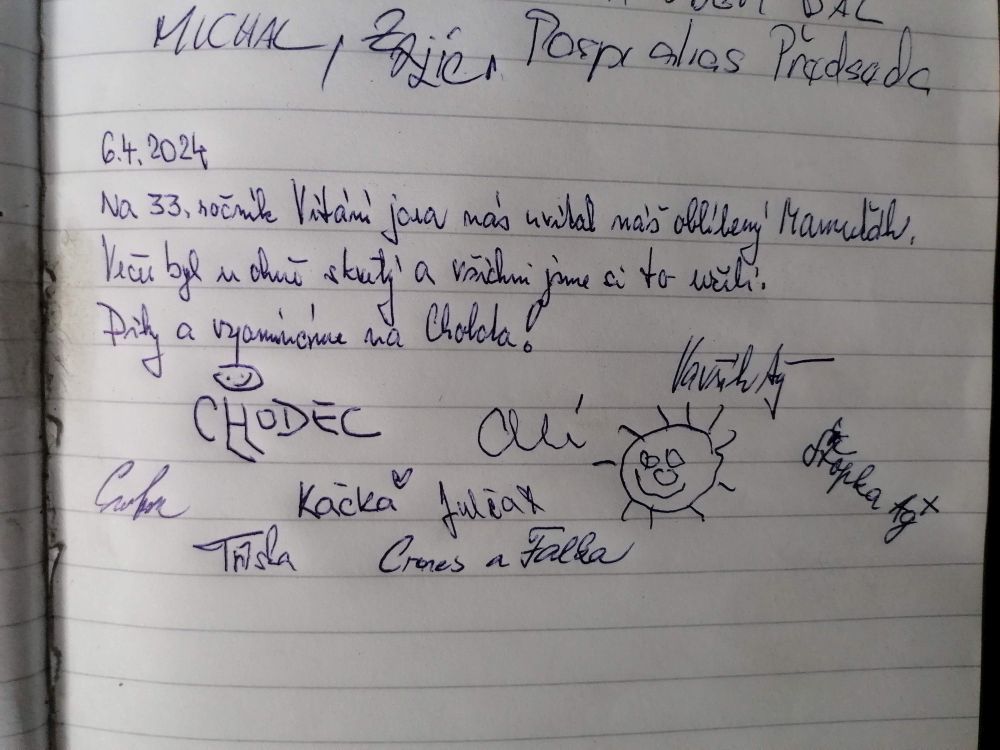 DÁL
MICHAL, Zajíc, Pospr alias Předseda
6.4.2024
Na 33. ročník Vítání jara nás uvítal náš oblíbený Mamuťák.
Večer byl u ohně skvělý a všichni jsme si to užili.
Díky a vzpomínáme na Cholda!
Vavřík Ag
CHODEC Olí
Štopka Ag
Káčka Julča
Tříska Crones a Falka